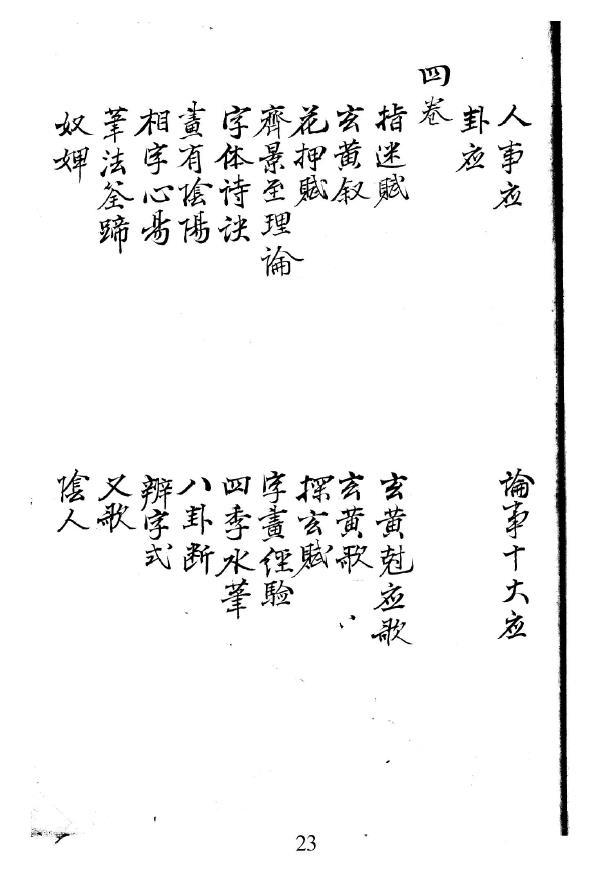 人事应　論事十大应
卦应
四卷
指迷賦　玄黄尅应歌
玄黄叙　玄黄歌
花押賦　探玄賦
齊景至理論　字畫经驗
字体诗诀　四季水筆
畫有陰陽　八卦断
相字心昜　辨字式
筆法筌蹄　又歌
奴婢　陰人
23